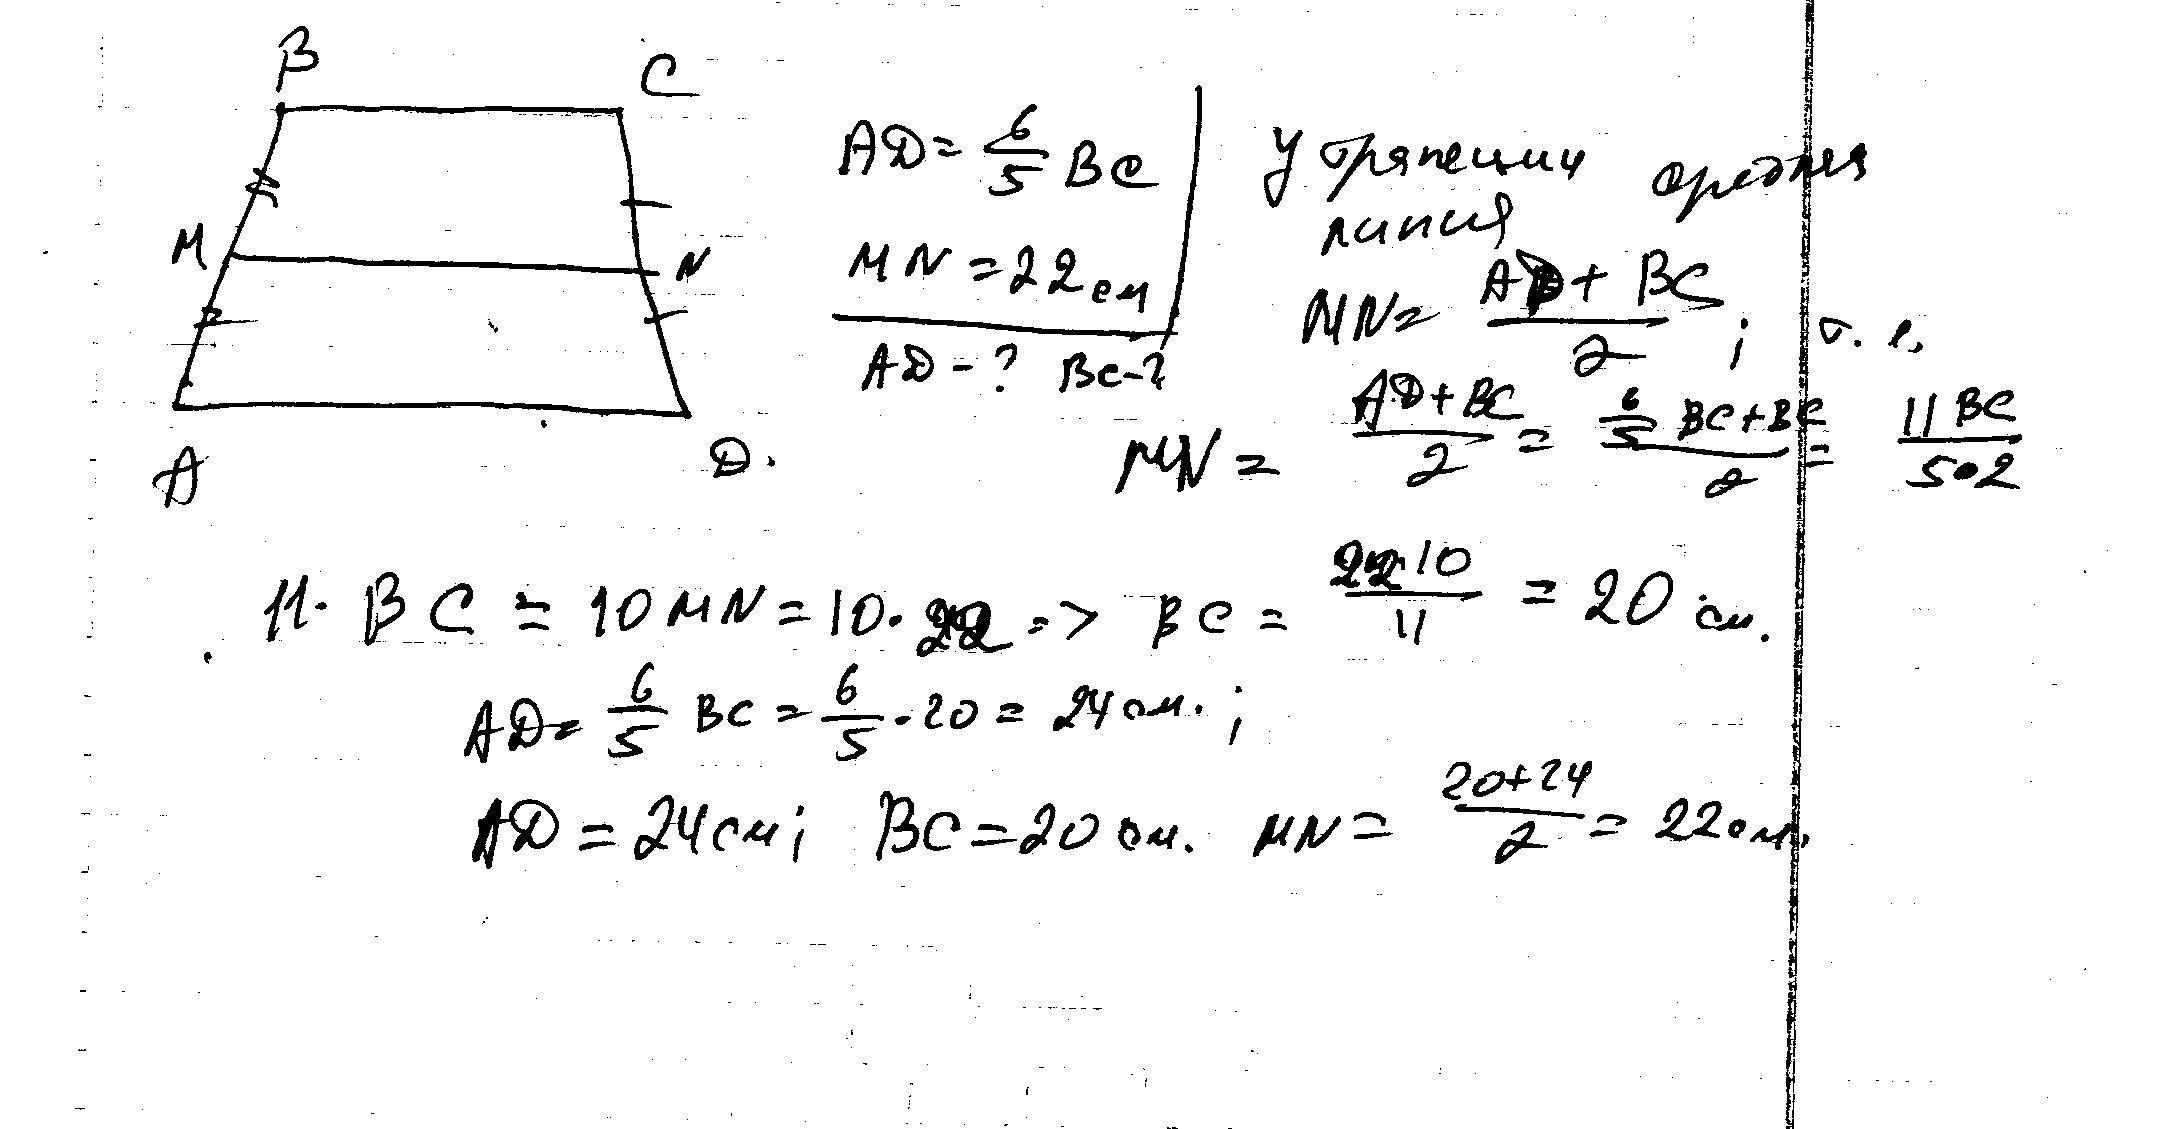 B
C
M
N
A
D.
AD = 6/5 BC
MN = 22 см
AD - ? BC - ?
У трапеции средняя
линия
MN = (AD + BC)/2 ; т. е.
MN = (AD + BC)/2 = (6/5 BC + BC)/2 = 11 BC/5•2
11 · BC = 10 MN = 10 · 22 => BC = 22·10/11 = 20 см.
AD = 6/5 BC = 6/5 · 20 = 24 см. ;
AD = 24 см ; BC = 20 см. MN = (20+24)/2 = 22 см.